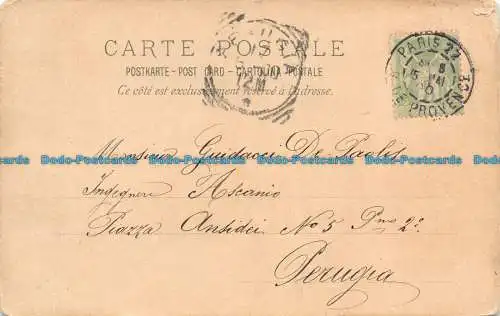 CARTE POSTALE
POSTKARTE - POST CARD - CARTOLINA POSTALE
Ce côté est exclusivement réservé à l'adresse.
PARIS 22
R. DE PROVENCE
12 M
Monsieur Guidacci De Paolis
Ingegnere Ascanio
Piazza Ansidei No 5 Pno 2º
Perugia
Dodo-Postcards Dodo-Postcards Dodo-Postcards Dodo-Postcards Dodo-Postcards Dodo-Postcards